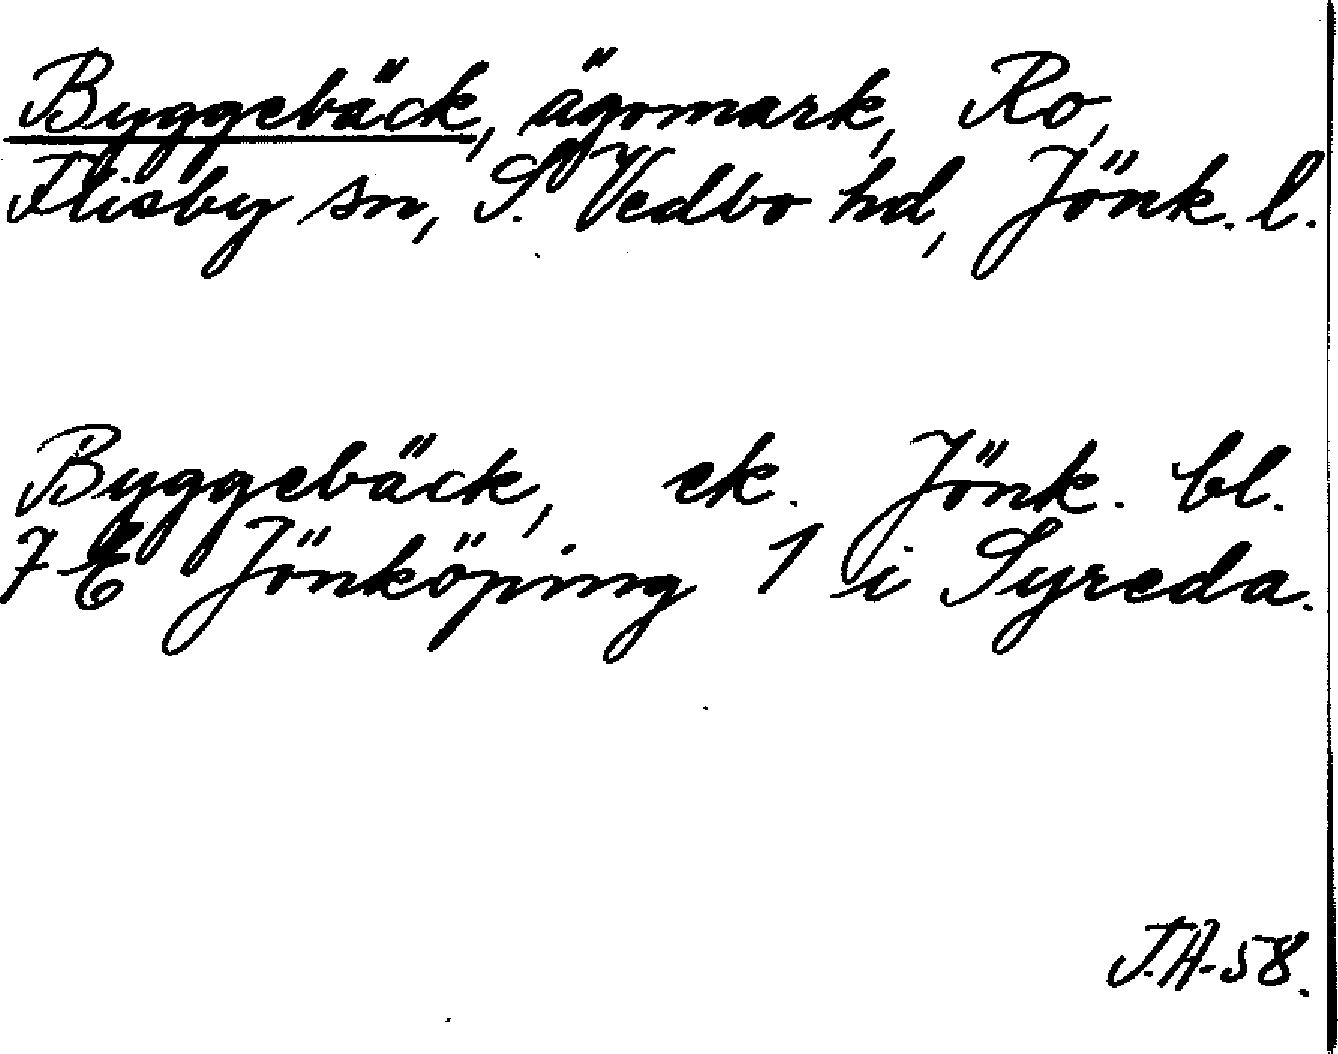 Byggebäck, ägomark, Ro,
Flisby sn, S. Vedbo hd, Jönk. l.
Byggebäck, ek. Jönk. bl.
7 E Jönköping 1 i Syreda.
J.A-58.